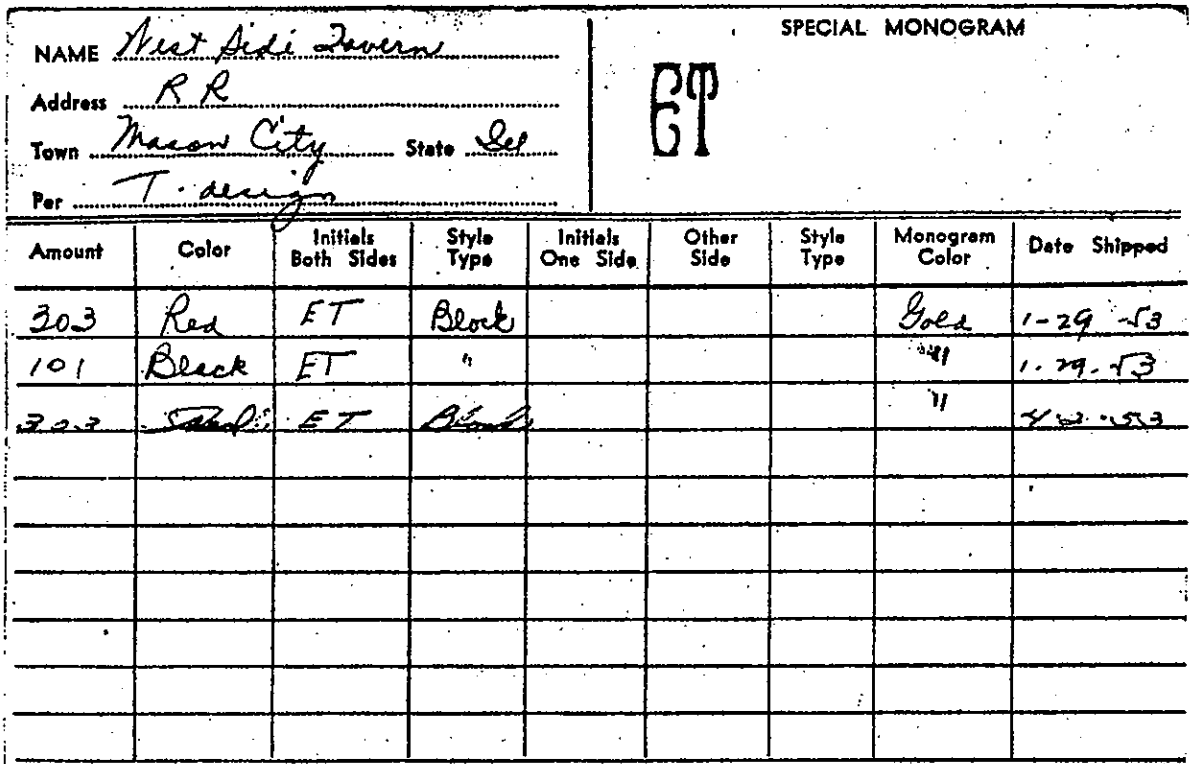 SPECIAL MONOGRAM
NAME West Side Tavern
ET
Address R R
Town Mason City State Ill
Per T. design
Amount Color Initials Both Sides Style Type Initials One Side Other Side Style Type Monogram Color Date Shipped
303 Red ET Block Gold 1-29-53
101 Black ET " " 1-29-53
303 ET Block "